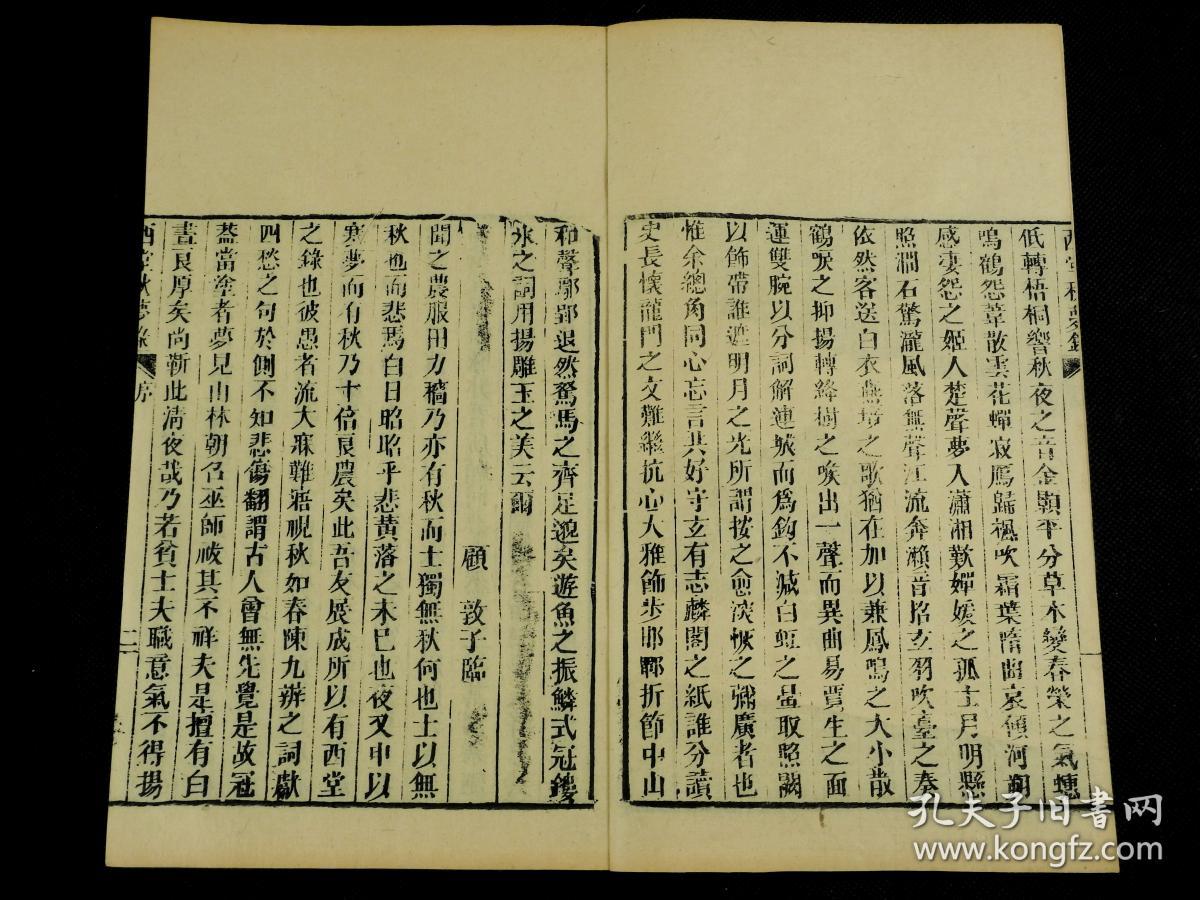 西堂秋夢錄
低轉梧桐響秋夜之音金顥平分草木變春榮之氣蟪
鳴鶴怨葦散雲花蟬寂鴈歸楓吹霜葉隋曲哀傾河朔
感凄怨之姬人楚聲夢入瀟湘歎嬋媛之孤士月明懸
照澗石驚瀧風落無聲江流奔瀨音招玄羽吹臺之奏
依然客送白衣燕市之歌猶在加以兼鳳鳴之大小散
鶴唳之抑揚轉絳樹之喉出一聲而異曲易賈生之面
運雙腕以分詞解連城而爲鈎不減白虹之暈取照闕
以飾帶誰遮明月之光所謂按之愈淡恢之彌廣者也
惟余總角同心忘言共好守玄有志麟閣之紙誰分讀
史長懷龍門之文難繼抗心大雅飾步邯鄲折節中山
和聲鄢郢退然駑馬之齊足邈矣遊魚之振鱗式冠鏤
氷之詞用揚雕玉之美云爾
顧 敦子臨
聞之農服田力穡乃亦有秋而士獨無秋何也士以無
秋也而悲焉白日昭昭乎悲黃落之未已也夜又申以
寒夢而有秋乃十倍良農矣此吾友展成所以有西堂
之錄也彼愚者流大寐難寤視秋如春陳九辨之詞獻
四愁之句於側不知悲傷翻謂古人曾無先覺是故冠
葢當塗者夢見山林朝召巫師祓其不祥夫是擅有白
晝良厚矣尚靳此清夜哉乃若貧士失職意氣不得揚
西堂秋夢錄 序 二
孔夫子旧书网
www.kongfz.com